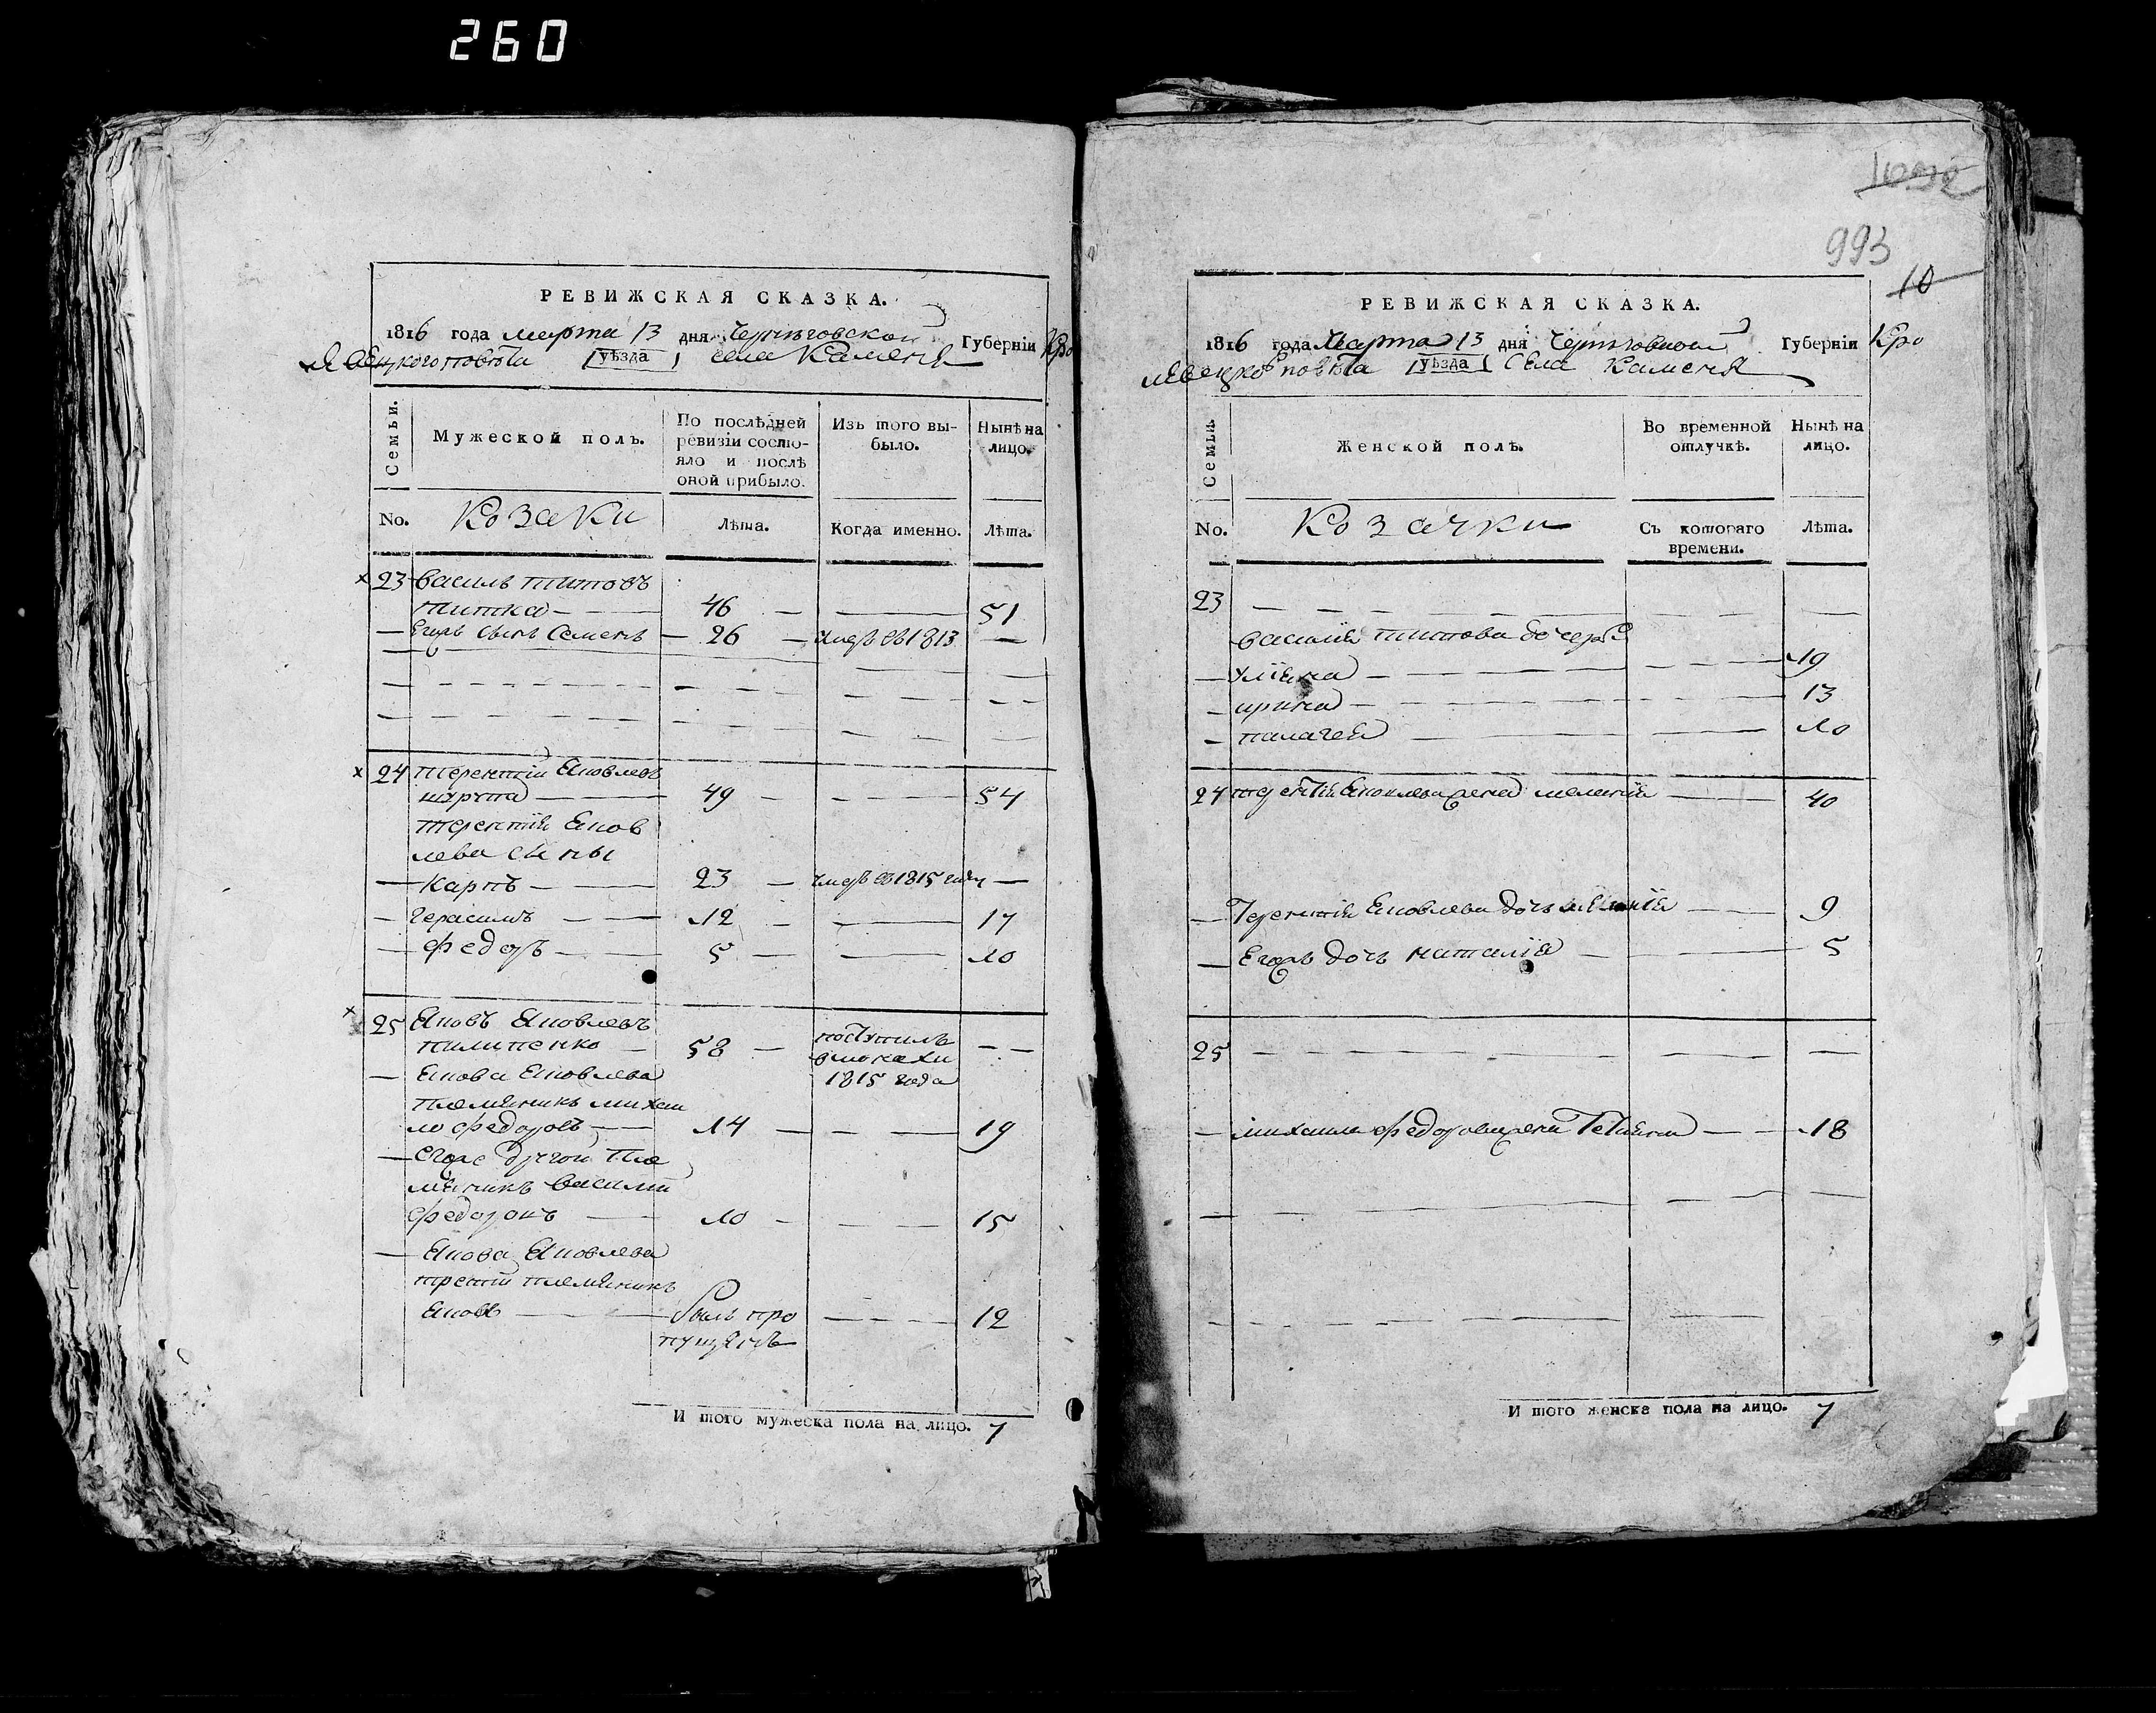 260
РЕВИЖСКАЯ СКАЗКА.
1816 года марта 13 дня Черниговской Губернїи Кро
левецкого повѣта уѣзда села Каменя
Семьи. Мужеской полъ. По послѣдней ревизїи состояло и послѣ оной прибыло. Изъ того выбыло. Нынѣ на лицо.
No. Козаки Лѣта. Когда именно. Лѣта.
23 василь титовъ
титка 46 51
Егоръ сынъ Семенъ 26 умеръ въ 1813
24 терентїй Яковлевъ
49 54
терентїя Яков
лева сыны
карпъ 23 умеръ въ 1815 году
герасимъ 12 17
федоръ 5 10
25 Яковъ Яковлевъ
пилипенко 58 поступилъ
Якова Яковлева в монахи
1815 года
племяникъ михаи
ло федоровъ 14 19
Егоже другой пле
мяникъ василїй
федоровъ 10 15
Якова Яковлева
третїй племяникъ
Яковъ былъ про 12
пущенъ
И того мужеска пола на лицо. 7
1092
993
10
РЕВИЖСКАЯ СКАЗКА.
1816 года Марта 13 дня Черниговской Губернїи Кро
левецко повѣта уѣзда Села Каменя
Семьи. Женской полъ. Во временной отлучкѣ. Нынѣ на лицо.
No. Козачки Съ котораго времени. Лѣта.
23
василїя титова дочери
улїяна 19
ирина 13
палагея 10
24 терентїя Яковлева жена меланїя 40
Терентїя Яковлева дочь 9
Егоръ дочь наталїя 5
25
михаила федорова жена Тетияна 18
И того женска пола на лицо. 7